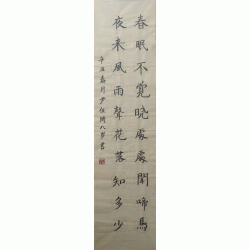 春眠不覺晓處處聞啼鳥
夜来風雨聲花落知多少
辛丑 月 八岁書